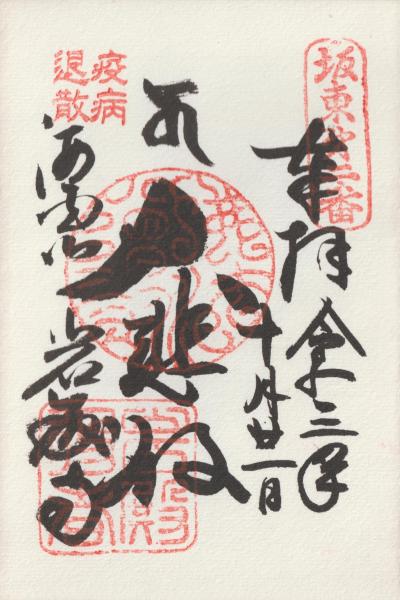 坂東第二番
奉拝 令和三年
十月廿一日
大悲殿
疫病
退散
海雲山 岩殿寺